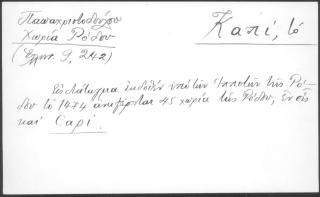 Παπαχριστοδούλου
Χωριά Ρόδου
(Ελλην. 9, 242)
Καπί, τό
Εἰς διάταγμα ἐκδοθέν ὑπό τῶν Ἱπποτῶν τῆς Ρό-
δου τό 1474 ἀναφέρονται 45 χωριά τῆς Ρόδου, ἐν οἷς
καί Capi.